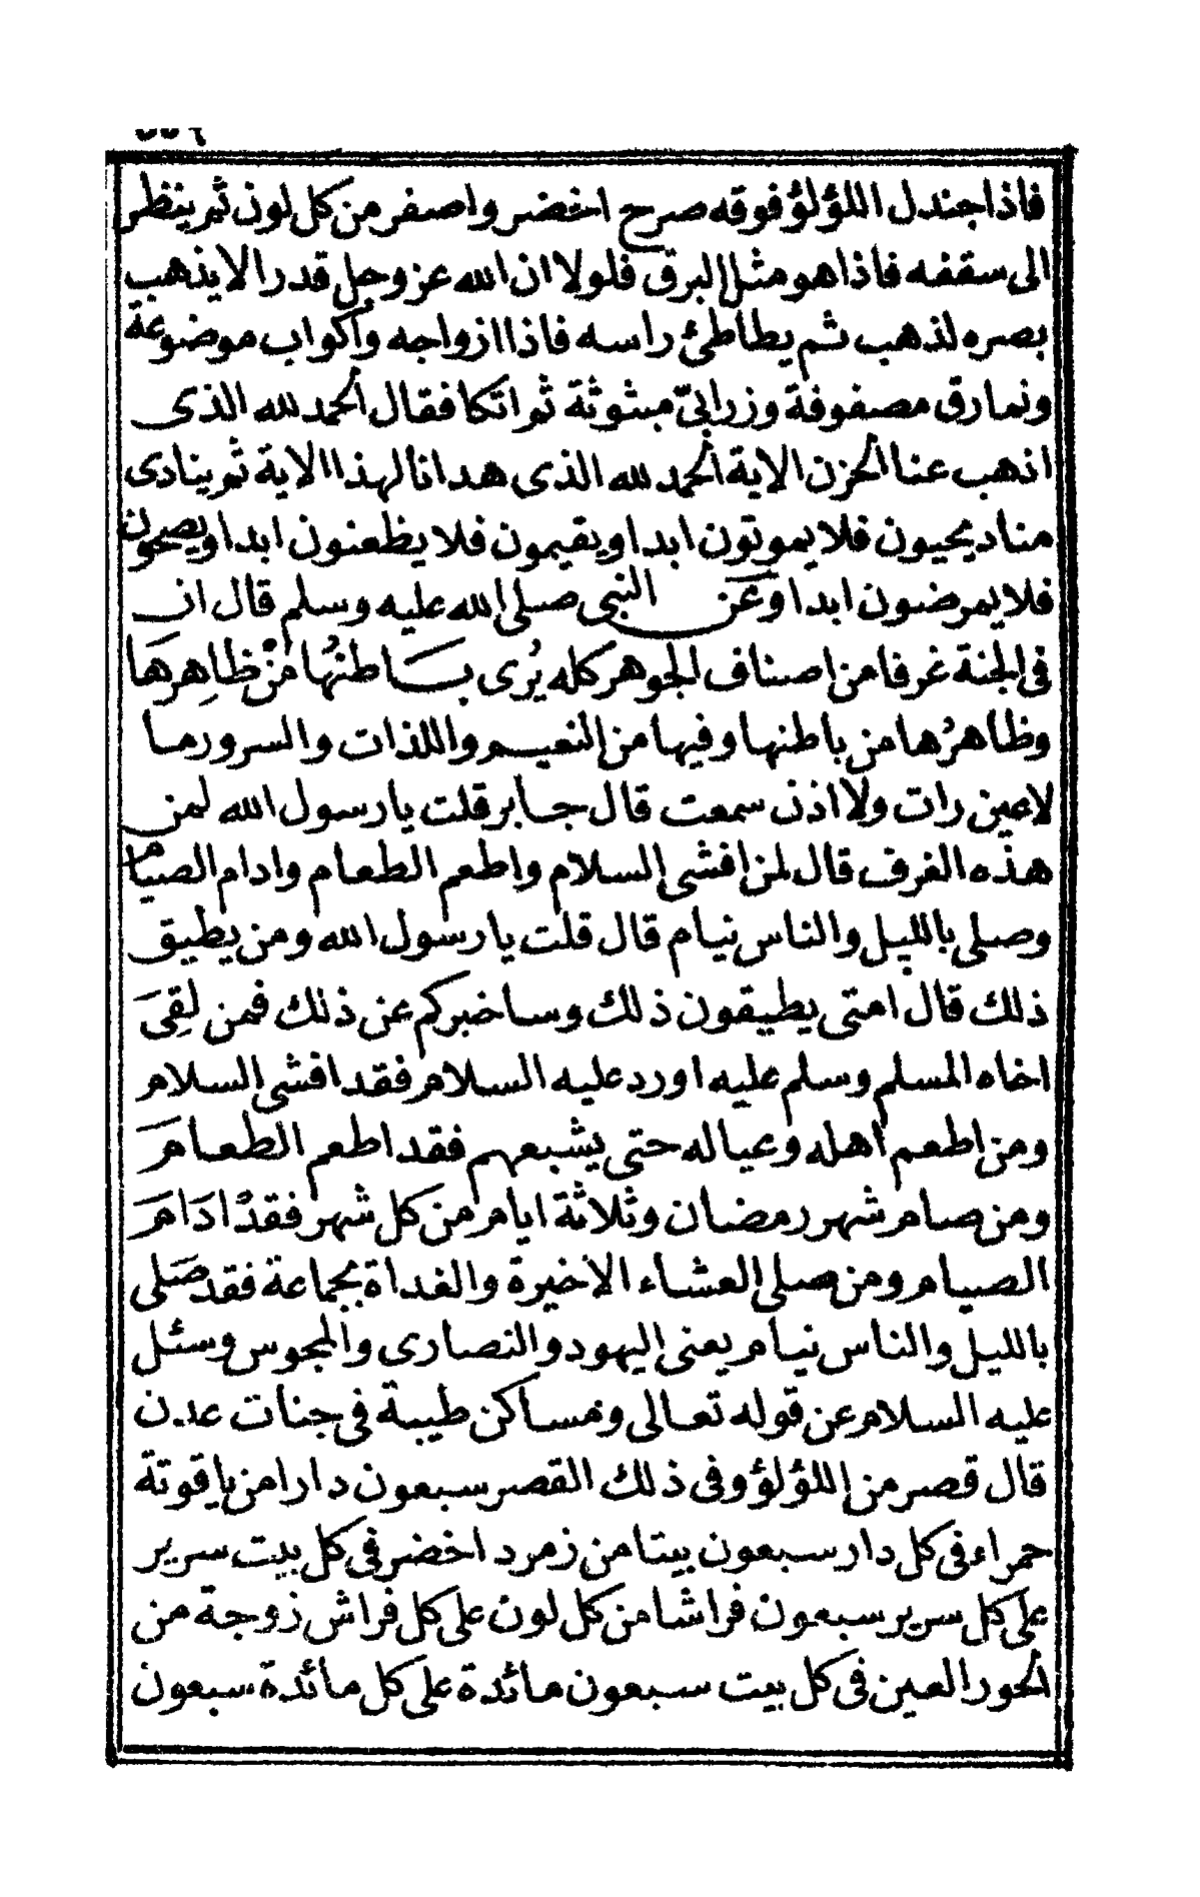 فاذا جندل اللؤلؤ فوقه صرح اخضر واصفر من كل لون ثم ينظر
الى سقفه فاذا هو مثل البرق فلولا ان الله عز وجل قدر الا يذهب
بصره لذهب ثم يطاطئ راسه فاذا ازواجه واكواب موضوعة
ونمارق مصفوفة وزرابىّ مبثوثة ثم اتكا فقال الحمد لله الذى
اذهب عنا الحزن الاية الحمد لله الذى هدانا لهذا الاية ثم ينادى
مناد يحيون فلا يموتون ابدا ويقيمون فلا يظعنون ابدا ويصحون
فلا يمرضون ابدا وعَن النبى صلى الله عليه وسلم قال ان
فى الجنة غرفا من اصناف الجوهر كله يُرى بَاطنُها مِنْ ظاهِرهَا
وظاهرُها من باطنها وفيها من النعيم واللذات والسرور ما
لا عين رات ولا اذن سمعت قال جابر قلت يا رسول الله لمن
هذه الغرف قال لمن افشى السلام واطعم الطعام وادام الصيام
وصلى بالليل والناس نيام قال قلت يا رسول الله ومن يطيق
ذلك قال امتى يطيقون ذلك وساخبركم عن ذلك فمن لقِىَ
اخاه المسلم وسلم عليه اورد عليه السلام فقد افشى السلام
ومن اطعم اهله وعياله حتى يشبعهم فقد اطعم الطعامَ
ومن صام شهر رمضان وثلاثة ايام من كل شهر فقدْ ادَامَ
الصيام ومن صلى العشاء الاخيرة والغداة بجماعة فقد صَلى
بالليل والناس نيام يعنى اليهود والنصارى والمجوس وسئل
عليه السلام عن قوله تعالى ومساكن طيبة فى جنات عدن
قال قصر من اللؤلؤ وفى ذلك القصر سبعون دارا من ياقوتة
حمراء فى كل دار سبعون بيتا من زمرد اخضر فى كل بيت سرير
على كل سرير سبعون فراشا من كل لون على كل فراش زوجة من
الحور العين فى كل بيت سبعون مائدة على كل مائدة سبعون